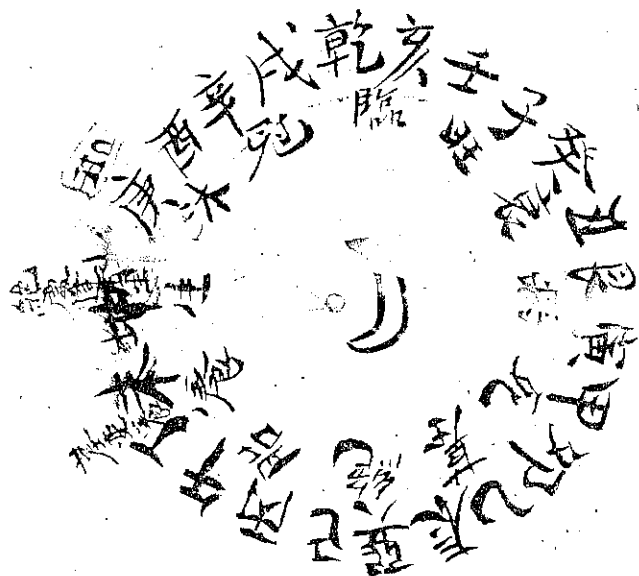 乾亥壬子癸丑艮寅甲卯乙辰巽巳丙午丁未坤申庚酉辛戌
臨旺衰病死墓絕胎養生沐冠